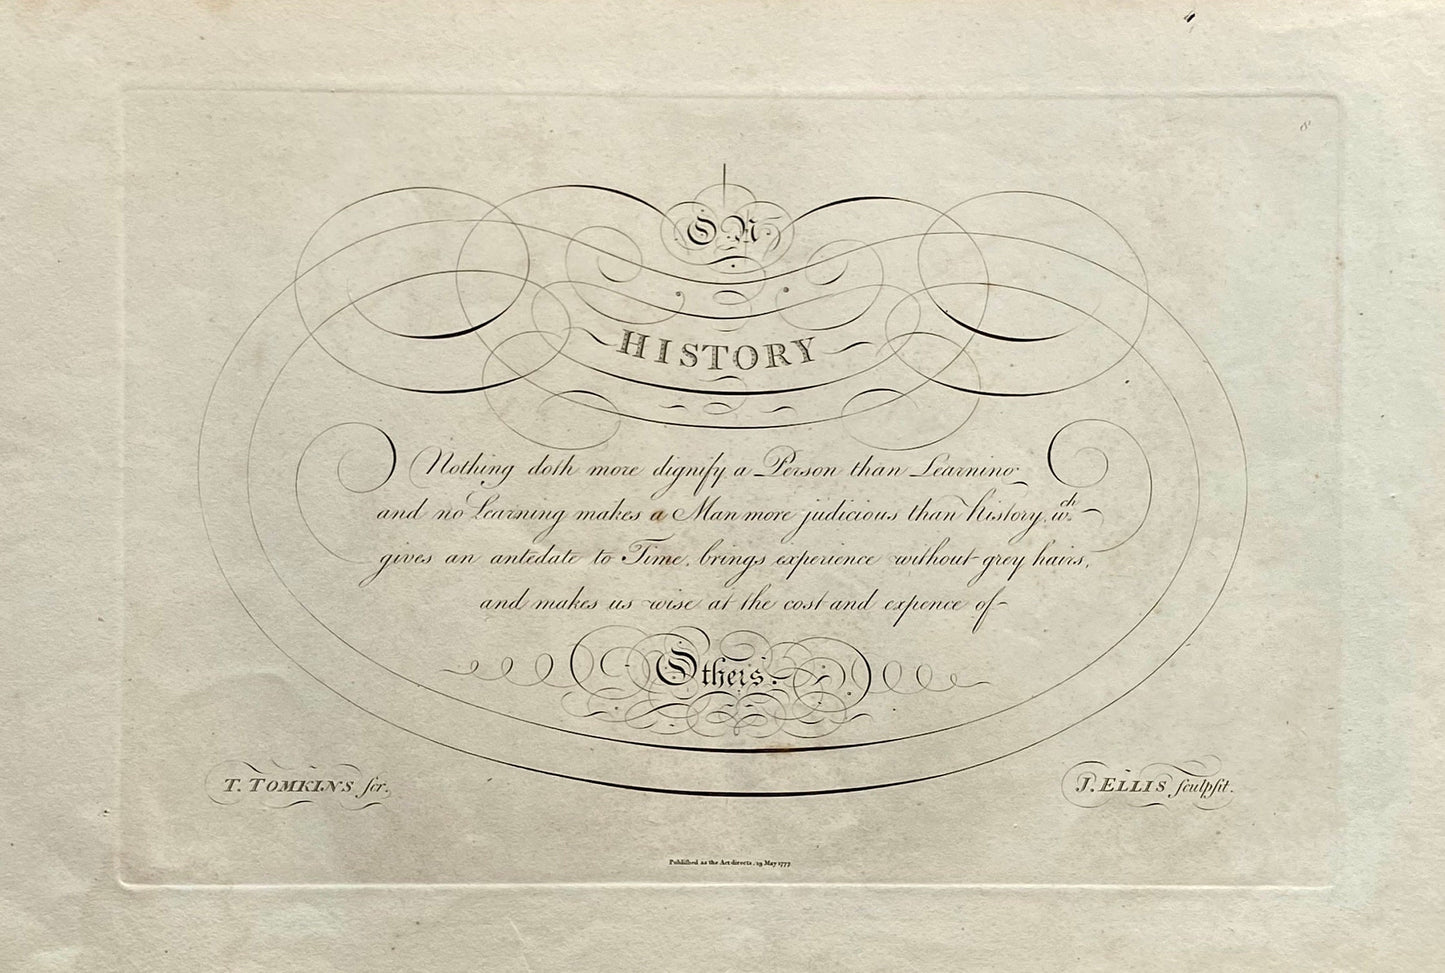 8
ON
HISTORY
Nothing doth more dignify a Person than Learning
and no Learning makes a Man more judicious than history, wch
gives an antedate to Time, brings experience without grey hairs,
and makes us wise at the cost and expence of
Others.
T. TOMKINS scr.
J. ELLIS sculpsit.
Published as the Act directs, 19 May 1777